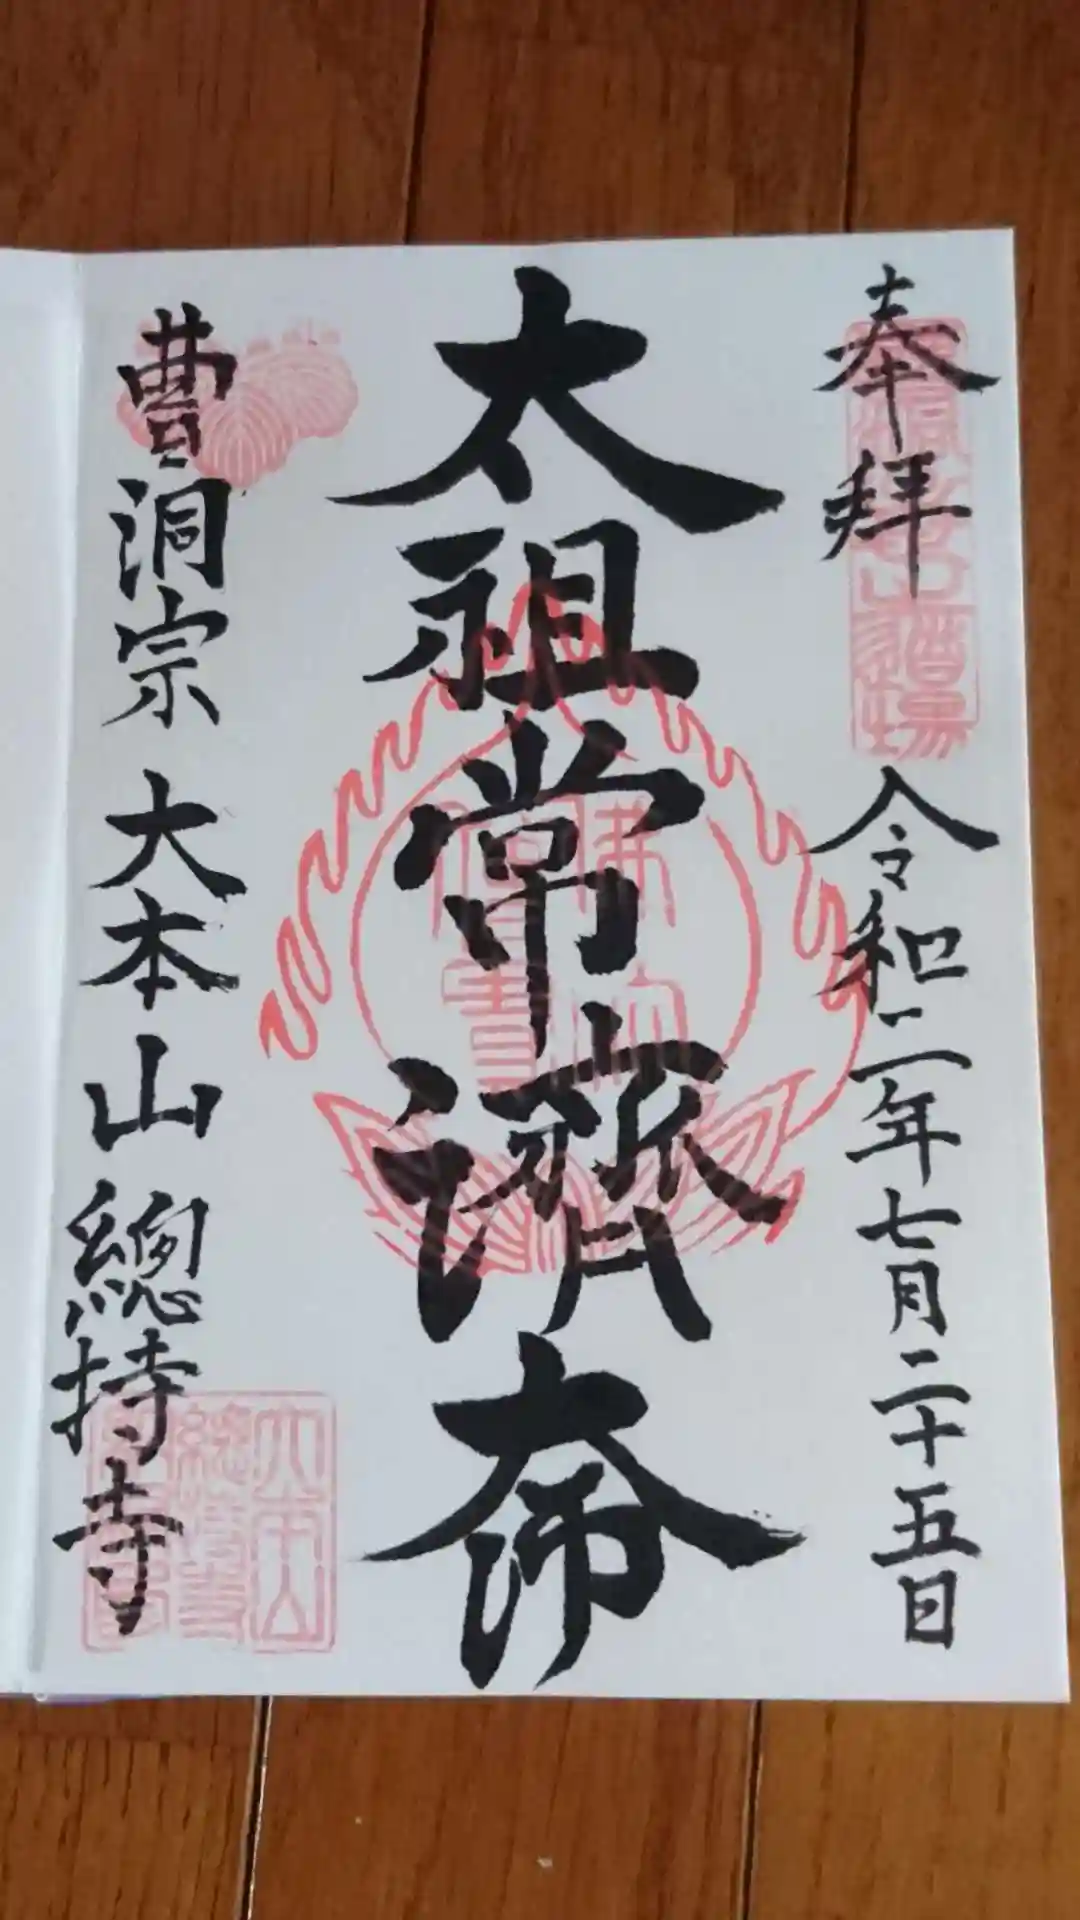 奉拝 令和二年七月二十五日
太祖常濟大師
曹洞宗 大本山 總持寺
大本山
總持寺